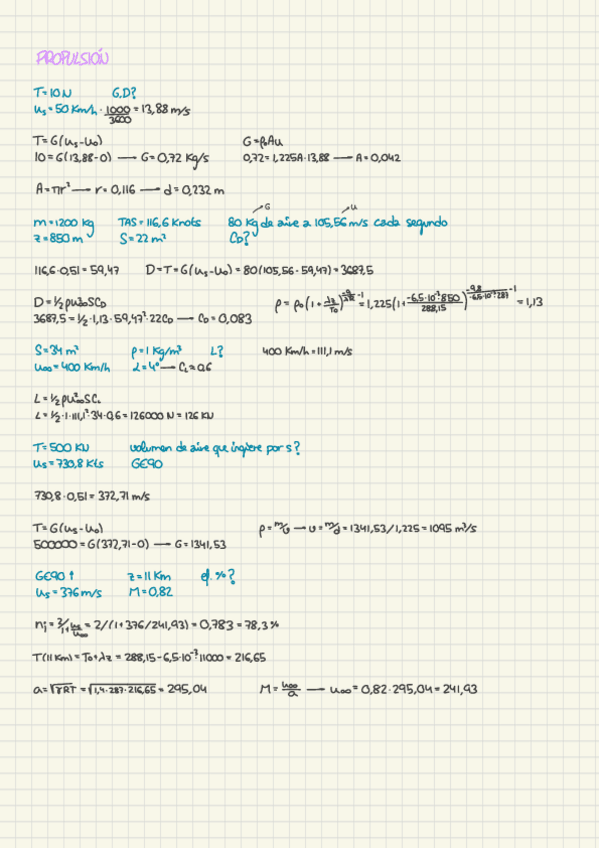 PROPULSIÓN
T = 10 N G, D?
us = 50 Km/h · 1000/3600 = 13,88 m/s
T = G(us - u0) G = ρ0Au
10 = G(13,88 - 0) → G = 0,72 Kg/s 0,72 = 1,225A · 13,88 → A = 0,042
A = πr² → r = 0,116 → d = 0,232 m
G u
m = 1200 kg TAS = 116,6 Knots 80 Kg de aire a 105,56 m/s cada segundo
z = 850 m S = 22 m² CD?
116,6 · 0,51 = 59,47 D = T = G(us - u0) = 80(105,56 - 59,47) = 3687,5
D = 1/2 ρu∞² SCD ρ = ρ0(1 + λz/T0)^(-g/λR - 1) = 1,225(1 + -6,5·10⁻³·850/288,15)^(-9,8/-6,5·10⁻³·287 - 1) = 1,13
3687,5 = 1/2 · 1,13 · 59,47² · 22CD → CD = 0,083
S = 34 m² ρ = 1 Kg/m³ L? 400 Km/h = 111,1 m/s
u∞ = 400 Km/h α = 4° → CL = 0,6
L = 1/2 ρu∞² SCL
L = 1/2 · 1 · 111,1² · 34 · 0,6 = 126000 N = 126 KN
T = 500 KN volumen de aire que ingiere por s?
us = 730,8 Kts GE90
730,8 · 0,51 = 372,71 m/s
T = G(us - u0) ρ = m/v → v = m/d = 1341,53/1,225 = 1095 m³/s
500000 = G(372,71 - 0) → G = 1341,53
GE90 ↑ z = 11 Km ef. %?
us = 376 m/s M = 0,82
ηj = 2/1+us/u∞ = 2/(1 + 376/241,93) = 0,783 = 78,3 %
T(11 Km) = T0 + λz = 288,15 - 6,5·10⁻³·11000 = 216,65
a = √γRT = √1,4·287·216,65 = 295,04 M = u∞/a → u∞ = 0,82 · 295,04 = 241,93